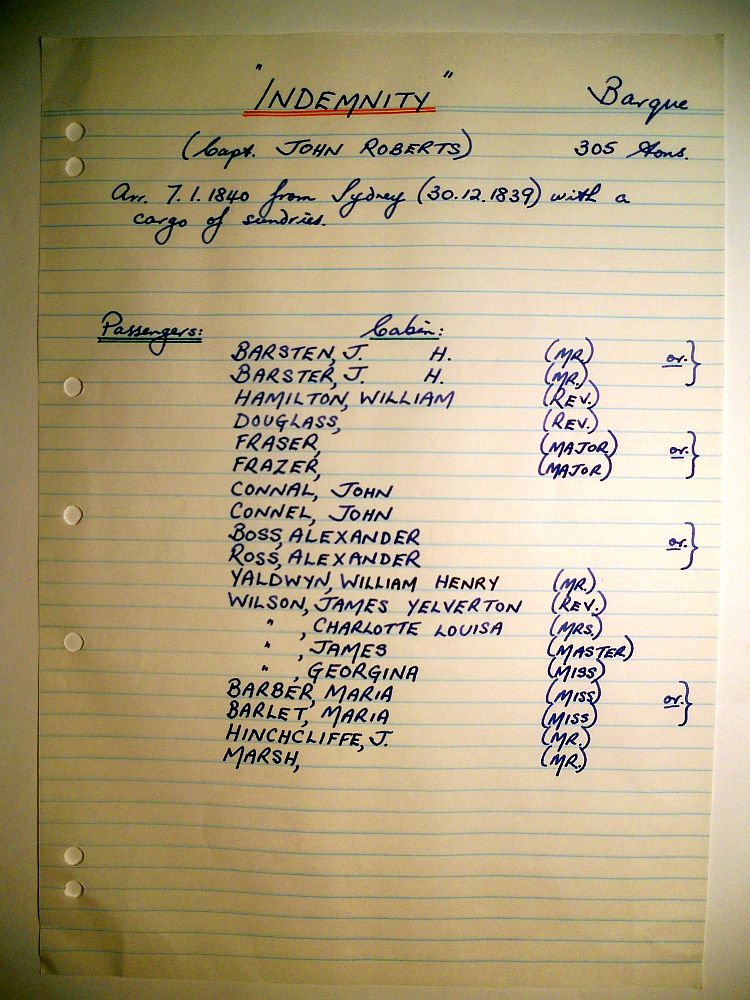 "INDEMNITY" Barque
(Capt. JOHN ROBERTS) 305 tons.
Arr. 7.1.1840 from Sydney (30.12.1839) with a
cargo of sundries.
Passengers: Cabin:
BARSTEN, J. H. (MR.) or }
BARSTER, J. H. (MR.)
HAMILTON, WILLIAM (REV.)
DOUGLASS, (REV.)
FRASER, (MAJOR) or. }
FRAZER, (MAJOR)
CONNAL, JOHN
CONNEL, JOHN
BOSS, ALEXANDER or. }
ROSS, ALEXANDER
YALDWYN, WILLIAM HENRY (MR.)
WILSON, JAMES YELVERTON (REV.)
" , CHARLOTTE LOUISA (MRS.)
" , JAMES (MASTER)
" , GEORGINA (MISS)
BARBER, MARIA (MISS) or. }
BARLET, MARIA (MISS)
HINCHCLIFFE, J. (MR.)
MARSH, (MR.)